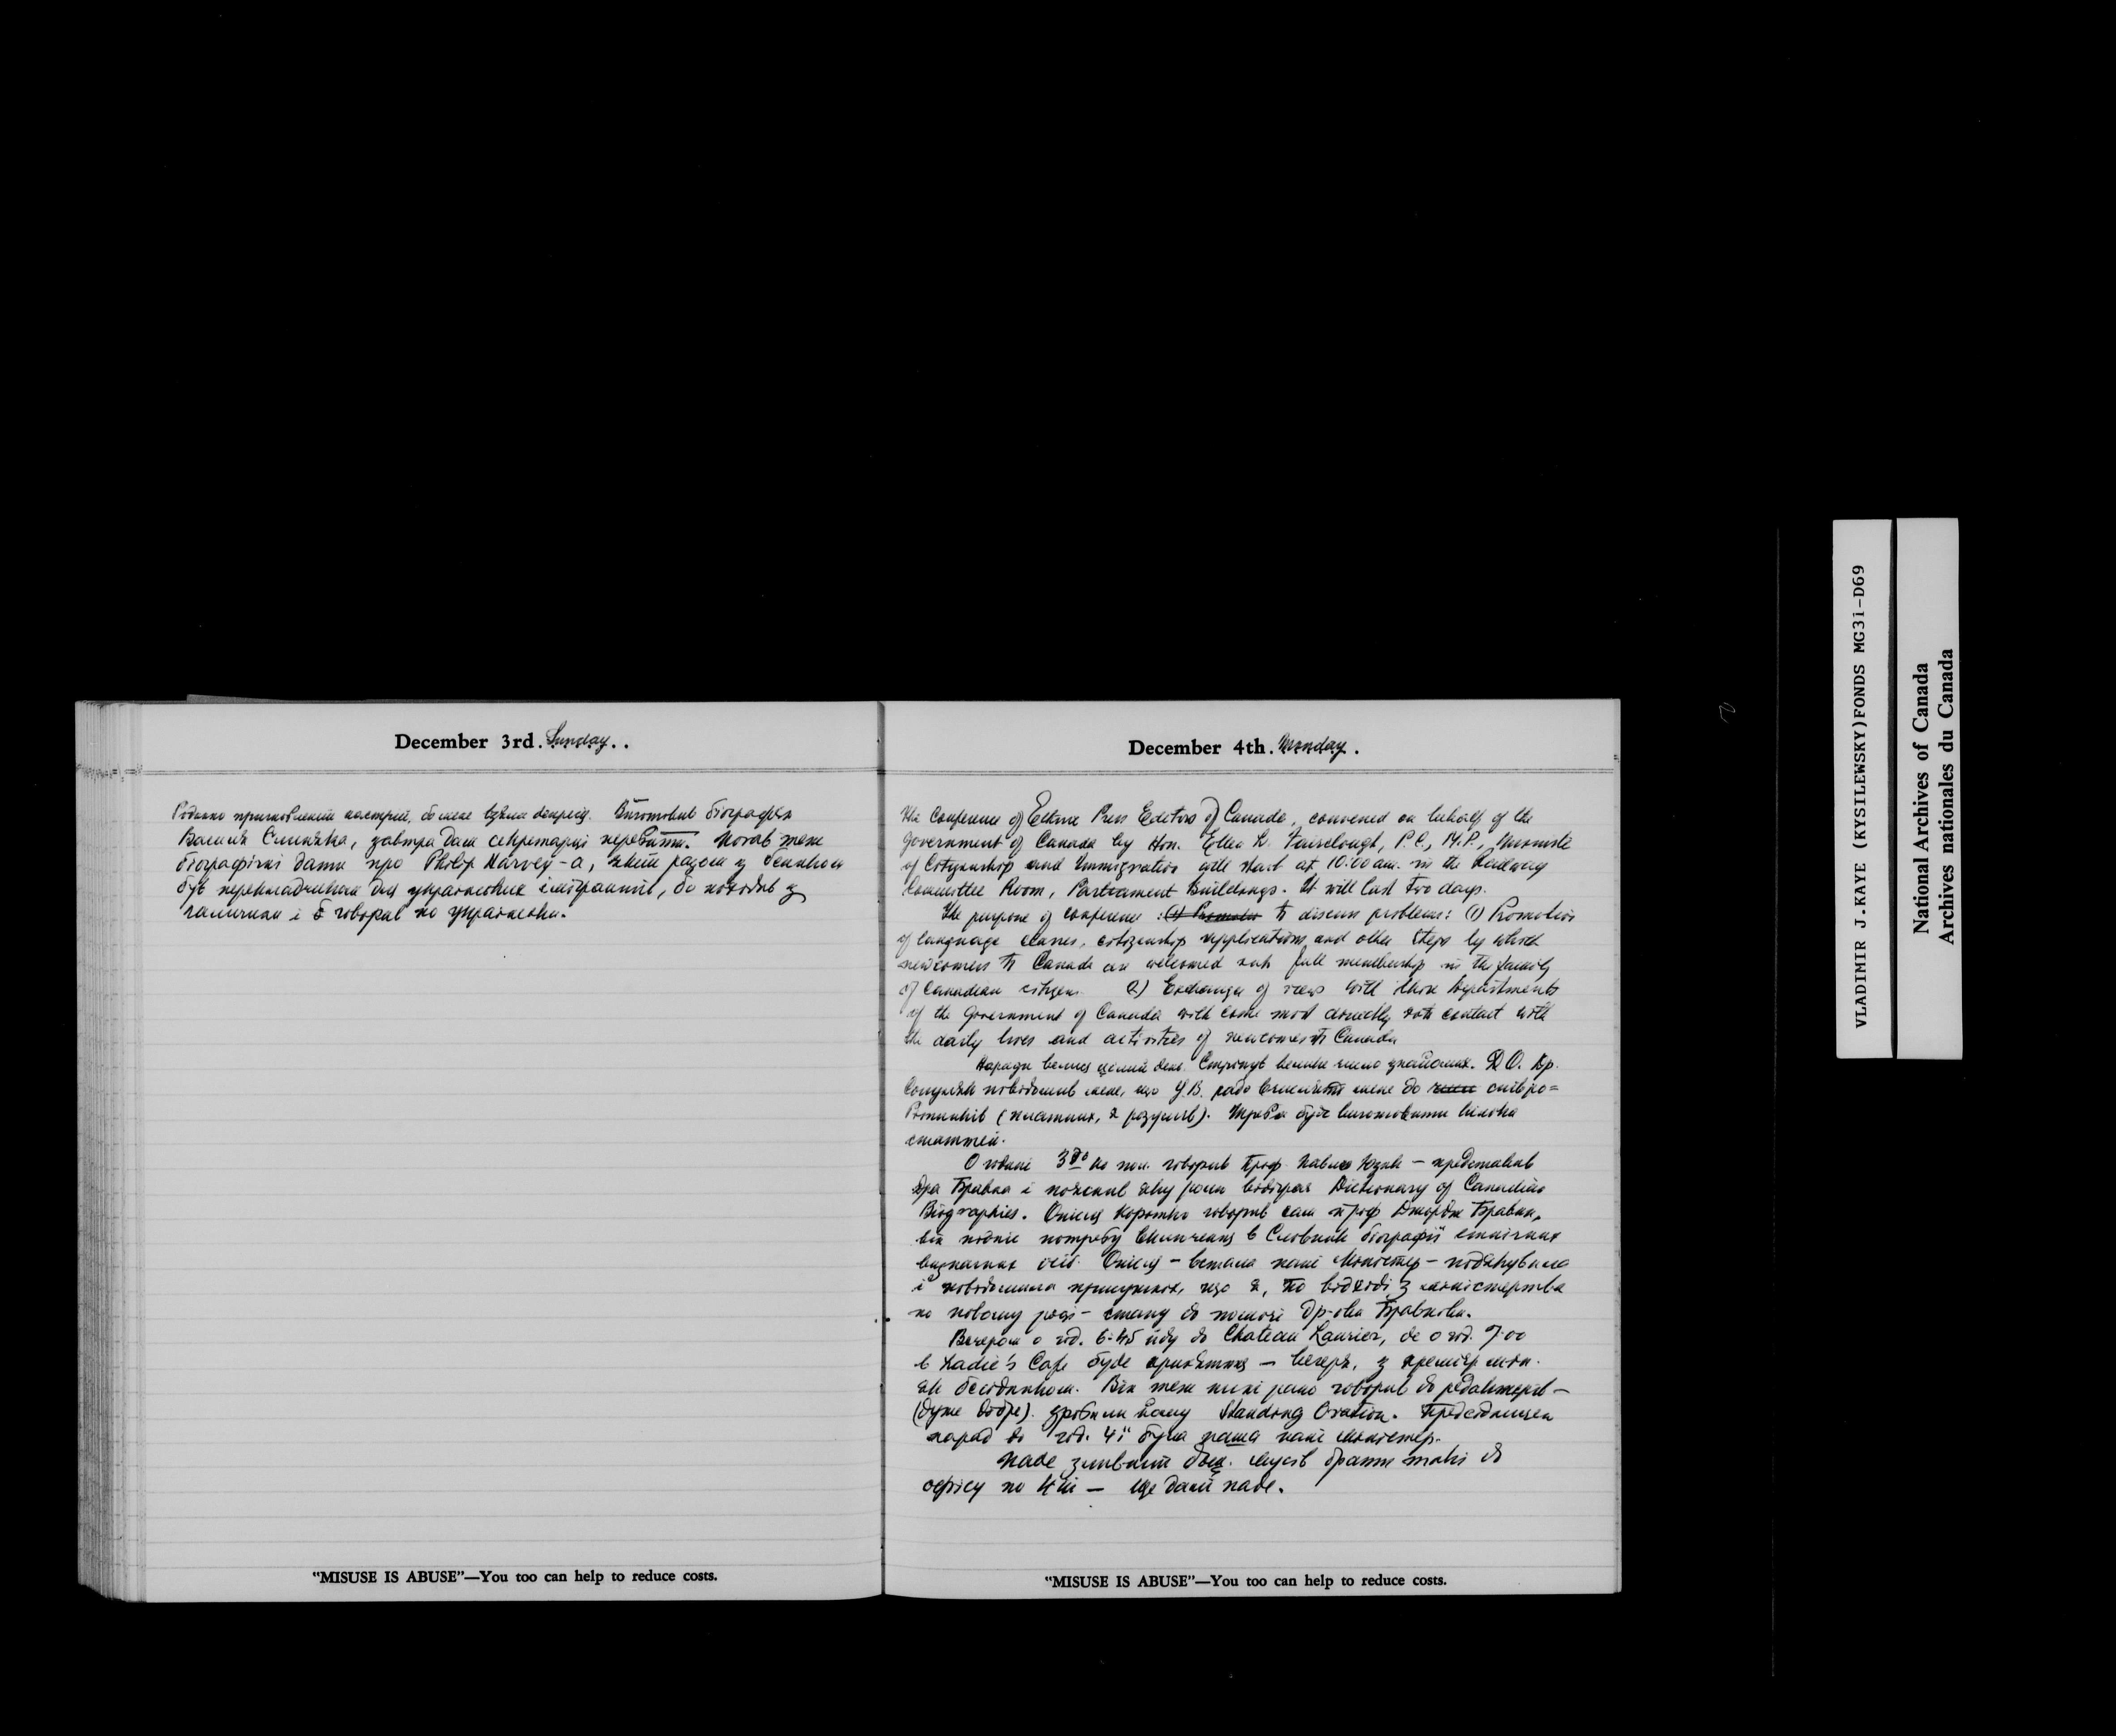 December 3rd. Sunday..
пригноблений настрій, бо мене взяла депресія. Виготовив біографію
Василя, завтра дам секретарці перебити. Почав теж
біографічні дати про Philip Harvey-а, який разом з
був перекладчиком для українських імігрантів, бо походив з
галичини і говорив по українськи.
"MISUSE IS ABUSE"—You too can help to reduce costs.
December 4th. Monday.
The Conference of Ethnic Press Editors of Canada, convened on behalf of the
Government of Canada by Hon. Ellen L. Fairclough, P.C., M.P., Minister
of Citizenship and Immigration will start at 10:00 am. in the Railway
Committee Room, Parliament Buildings. It will last two days.
The purpose of conference: (1) Promotion to discuss problems: (1) Promotion
of language classes, citizenship applications and other steps by which
newcomers to Canada are welcomed into full membership in the family
of Canadian citizens. (2) Exchange of views with those Departments
of the Government of Canada with come most directly into contact with
the daily lives and activities of newcomers to Canada
Наради цілий день. Стрінув велике число знайомих. Др.
повідомив мене, що У.В. радо мене до співро=
бітників (платних, я розумів). Треба буде виготовити кілька
статтей.
О годині 3ій по пол. говорив Проф. Павло Юзик — представив
дра Бравна і пояснив яку ролю відіграє Dictionary of Canadian
Biographies. Опісля коротко говорив сам проф Джордж Бравн,
він подніс потребу включення в Словник біографії етнічних
визначних осіб. Опісля — встала пані Міністер — подякувала
і повідомила присутних, що я, по відході з міністерства
по новому році — стану до помочі Др-ови Бравнови.
Вечером о год. 6:45 йду до Chateau Laurier, де о год. 7:00
в Ladie's Cafe буде прийняття — вечеря, з премієр мін.
як бесідником. Він теж нині рано говорив до редакторів —
(дуже добре). зробили йому Standing Ovation. Предсідником
нарад до год. 4ї була наша пані міністер.
Паде зливний дощ. мусів брати таксі до
офісу по 4ій — ще далі паде.
"MISUSE IS ABUSE"—You too can help to reduce costs.
VLADIMIR J.KAYE (KYSILEWSKY)FONDS MG31-D69
National Archives of Canada
Archives nationales du Canada